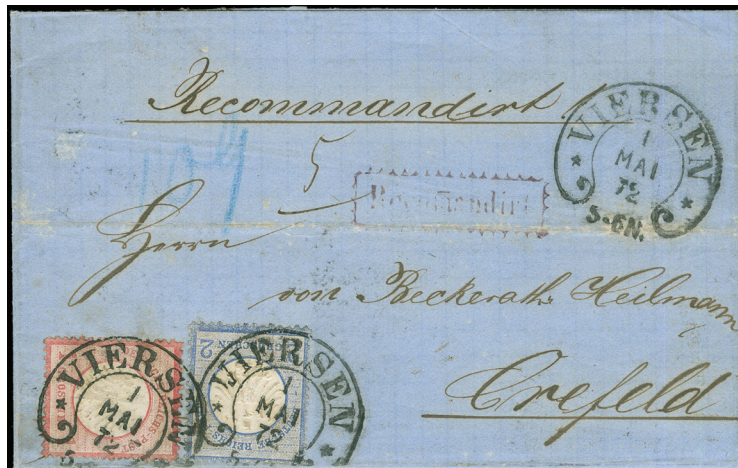 Recommandirt
VIERSEN
1
MAI
72
5-6N.
5
Recommandirt
Herrn
von Beckerath-Heilmann
Crefeld
VIERSEN
1
MAI
72
2
VIERSEN
1
MAI
72